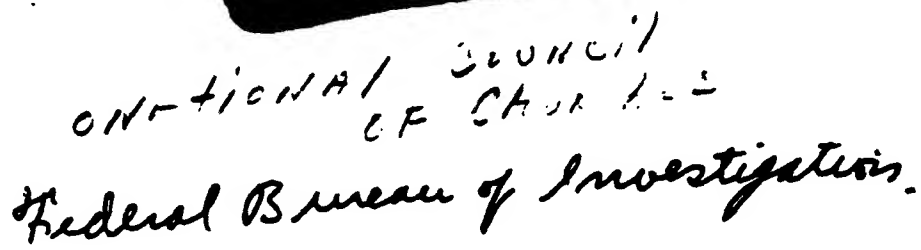 NATIONAL COUNCIL
OF CHURCHES
Federal Bureau of Investigation.